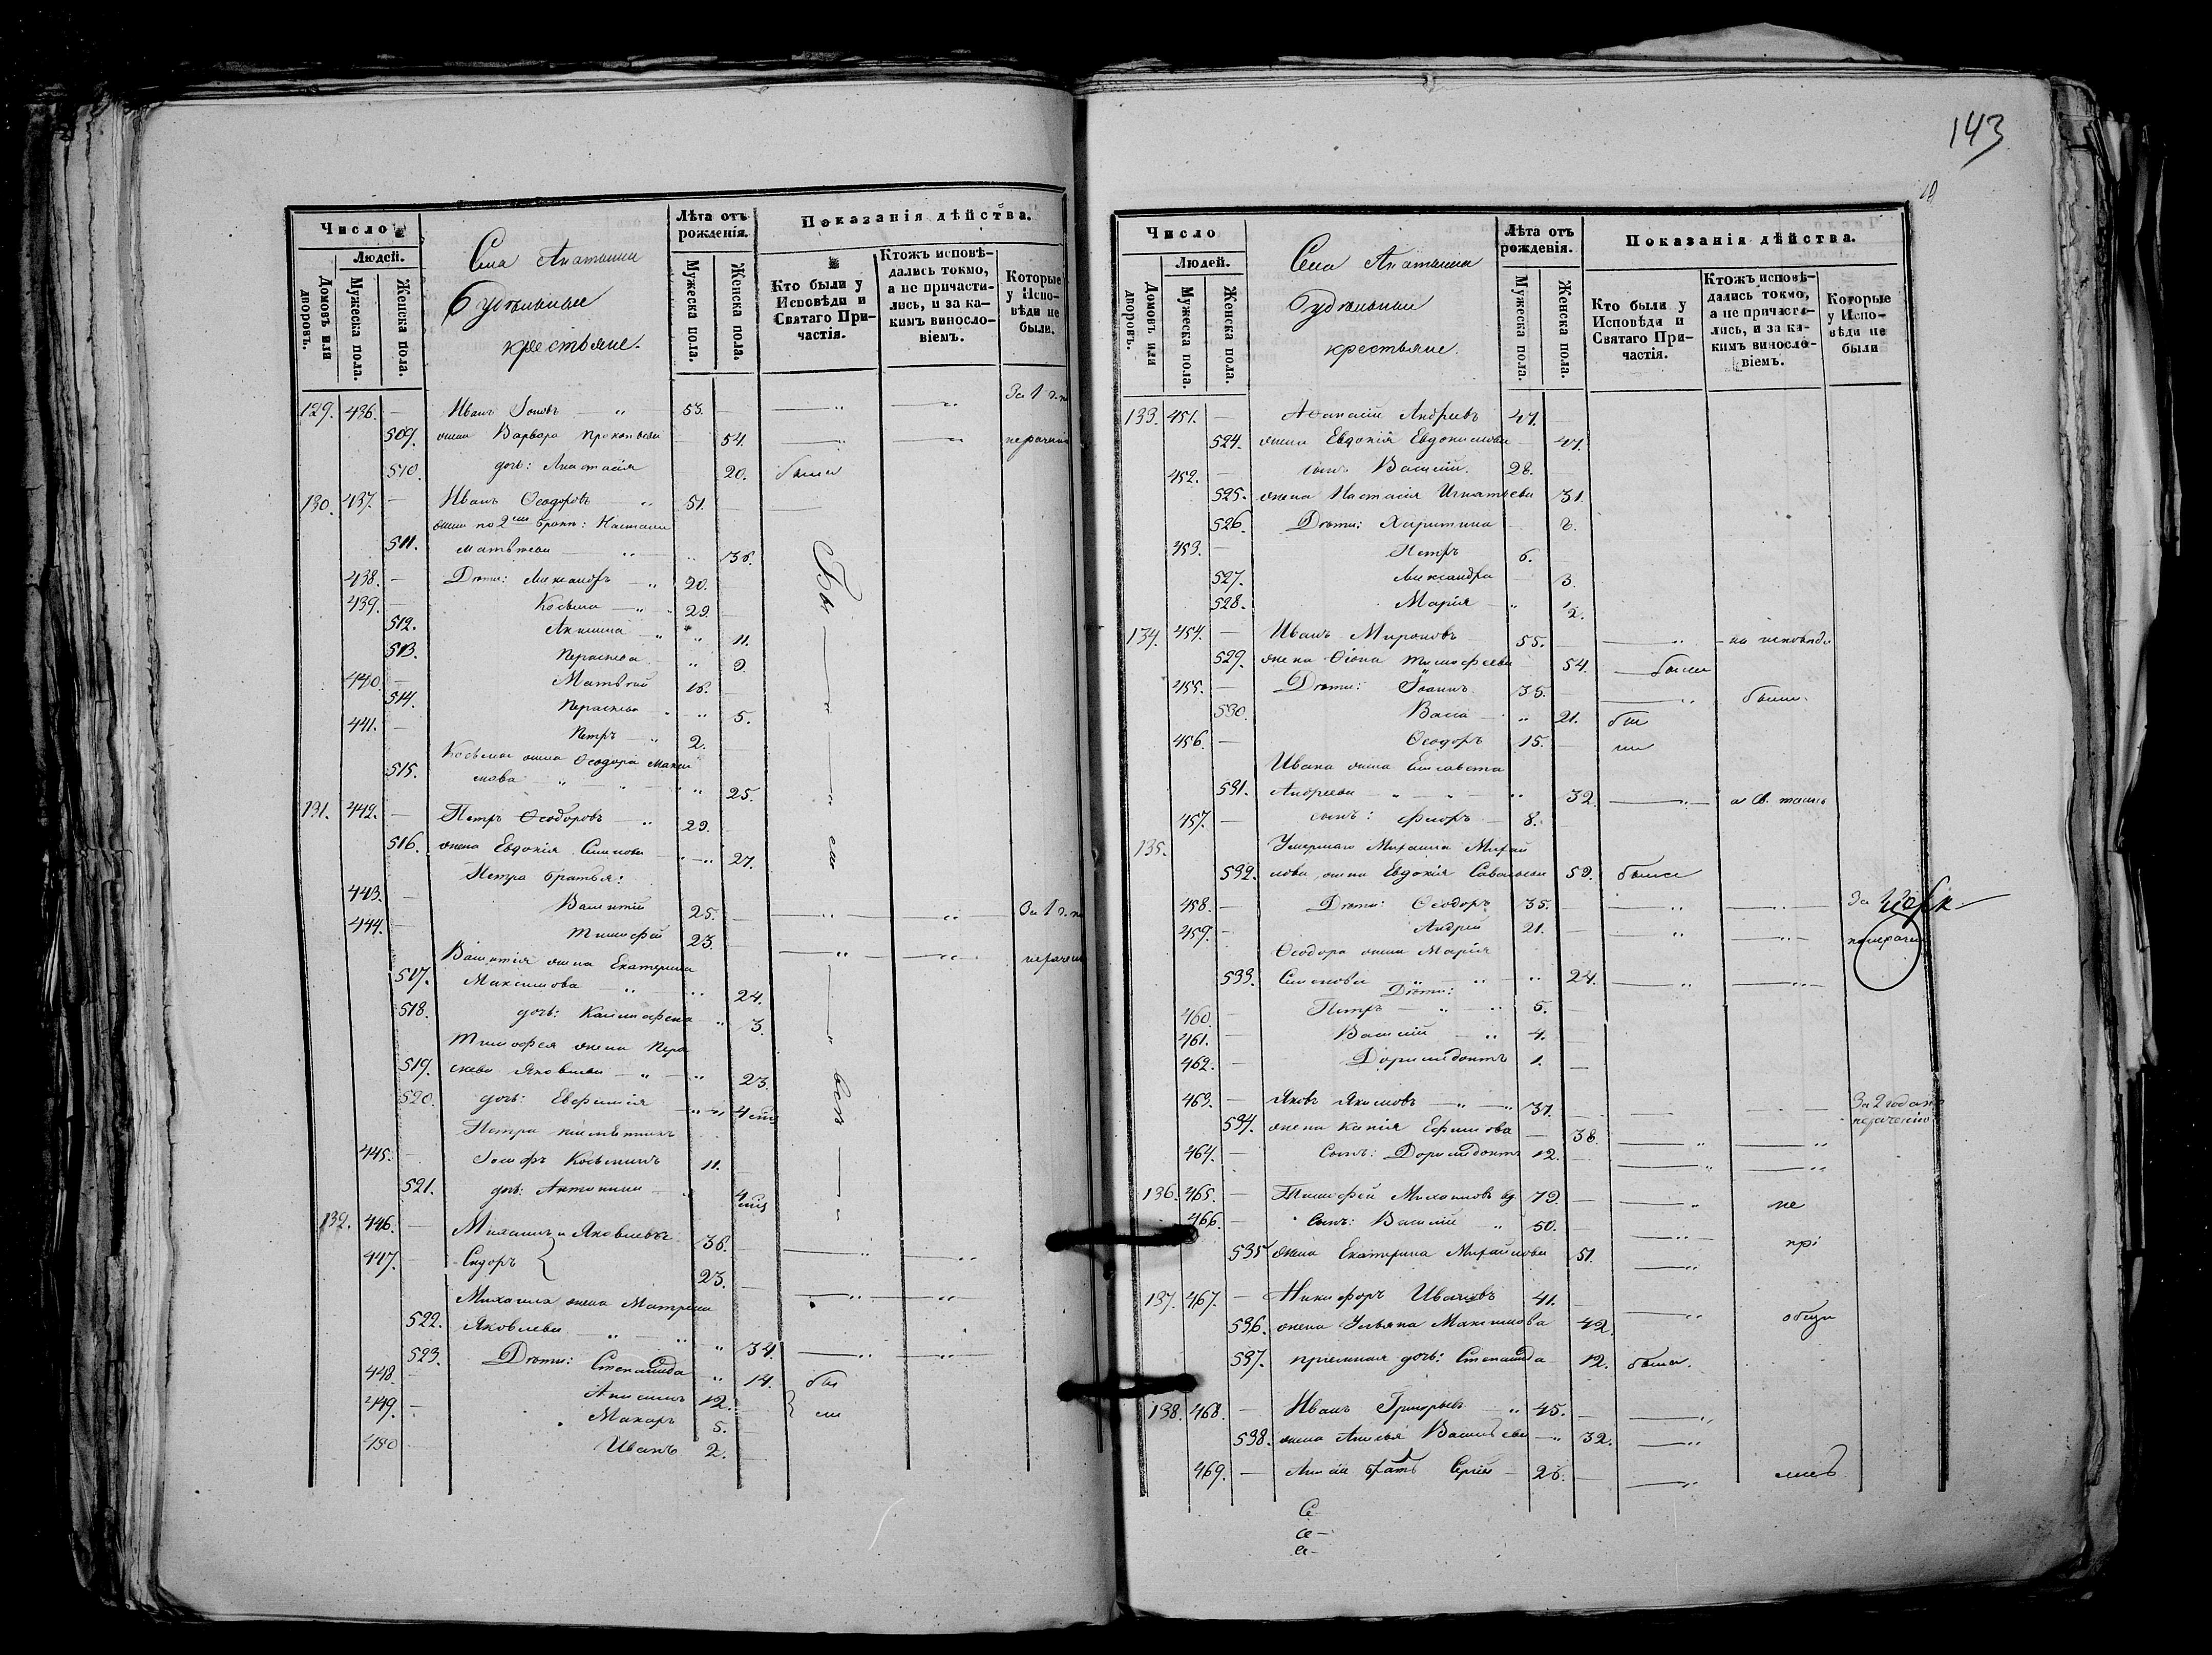 Число
Людей.
Домовъ или дворовъ.
Мужеска пола.
Женска пола.
Села
Б удѣльныи
крестьяне.
Лѣта отъ рожденія.
Мужеска пола.
Женска пола.
Показанія дѣйства.
Кто были у Исповѣди и Святаго Причастія.
Ктожъ исповѣдались токмо, а не причастились, и за какимъ винословіемъ.
Которые у Исповѣди не были.
129. 436. — Иванъ — „ 53. —
509. жена Варвара Прокопьева — 54.
510. дочь: Анастасія 20. была
130. 437. — Иванъ Ѳеодоровъ „ 51.
жена по 2мъ бракѣ: Настасія
511. Матвѣева — „ — „ 36.
438. — Дѣти: Александръ — „ 20.
439. — Косьма — „ 29. —
512. Акилина — „ „ 11.
513. Параскева „ 9.
440. — Матвѣй 16. —
514. Параскева „ — „ 5.
441. — Петръ — „ 2.
Косьмы жена Ѳеодора Макси
515. мова — „ — „ — „ „ 25.
131. 442. — Петръ Ѳеодоровъ — „ 29.
516. жена Евдокія Семенова — „ — „ 27.
Петра братья:
443. — Василій 25. —
444. — Тимофей 23.
Василія жена Екатерина
517. Максимова „ „ 24.
518. дочь: „ 3.
Тимофея жена Пара
519. скева Яковлева — „ — „ 23.
520. дочь: Евфимія — „ — „
Петра племянникъ
445. — Іосифъ Косьминъ 11.
521. дочь: Антонина — „
132. 446. — Михаилъ и Яковлевы 36. —
447. — Сидоръ 23. —
Михаила жена Матрена
522. Яковлева — „ — „ „ 34.
523. Дѣти: Степанида „ 14. бы
448. — Анисимъ 12. ли
449. — Макаръ 5.
450 — Иванъ 2. —
143
Число
Людей.
Домовъ или дворовъ.
Мужеска пола.
Женска пола.
Села
Б удѣльныи
крестьяне.
Лѣта отъ рожденія.
Мужеска пола.
Женска пола.
Показанія дѣйства.
Кто были у Исповѣди и Святаго Причастія.
Ктожъ исповѣдались токмо, а не причастились, и за какимъ винословіемъ.
Которые у Исповѣди не были
133. 451. — Аѳанасій Андреевъ 47.
524. жена Евдокія Евдокимова — 47.
452. — сынъ Василій. 28. —
525. жена Настасія Игнатьева 31.
526. Дѣти: Харитина 8.
453. — Петръ 6.
527. Александра — 3.
528. Марія — „ 2.
134. 454. — Иванъ Мироновъ 55. — „ — на исповѣди
529. жена Ѳіона Тимофеева 54. — были
455. — Дѣти: Іоаннъ 35. — „ были
530. Васса „ 21. бы
456. — Ѳеодоръ 15. — ли
Ивана жена Елисавета
531. Андреева „ — „ — „ 32. — „ —
457. — сынъ: Флоръ — 8. —
135. Умершаго Михаила Михай
532. лова, жена Евдокія Савельева 59. были
458. — Дѣти: Ѳеодоръ 35. — „ — „ За
459. — Андрей 21. — „ — „ —
Ѳеодора жена Марія
533. Семенова „ — „ „ 24. — „
Дѣти:
460. — Петръ — „ — „ 5. —
461. — Василій — „ 4. —
462. — Доримедонтъ 1. —
463. — Яковъ Якимовъ — „ — „ 37. — За 2 года по нераченію
534. жена Ефимова — 38. — „ — „
464. — Сынъ: Доримедонтъ 12. — „ — „
136. 465. — Тимофей Михаиловъ вд. 79. — „ не
466. — Сынъ: Василій „ 50. — „ прі
535 жена Екатерина Михайлова 51. — „
137. 467. — Никифоръ Ивановъ 41. — „ общи
536. жена Ульяна Максимова 42.
537. пріемная дочь: Степанида 12. была.
138. 468. — Иванъ Григорьевъ „ 45. — „
538. жена Васильева — „ 32. — „
469. — братъ Сергій — 26. — „
Се
се —
се —